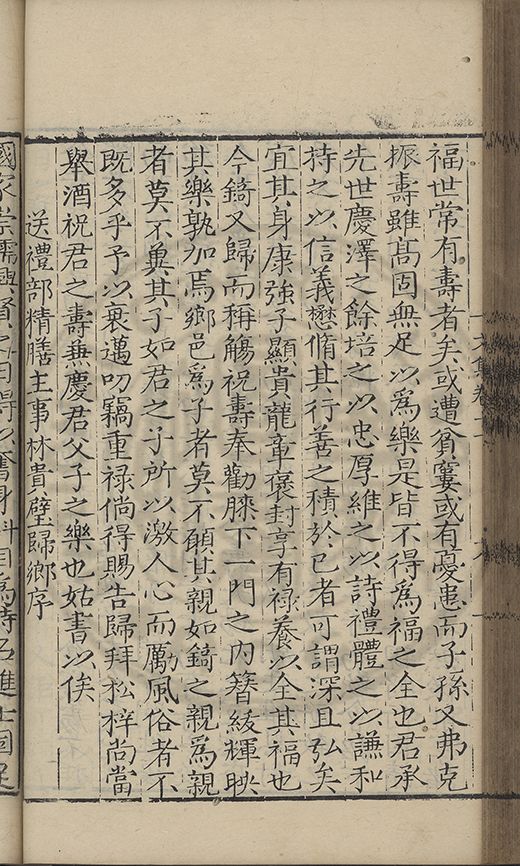 福世常有壽者矣或遭貧窶或有憂患而子孫又弗克
振壽雖高固無足以為樂是皆不得為福之全也君承
先世慶澤之餘培之以忠厚維之以詩禮體之以謙和
持之以信義懋脩其行善之積於已者可謂深且弘矣
宜其身康強子顯貴龍章褒封享有祿養以全其福也
今錡又歸而稱觴祝壽奉勸膝下一門之內簪紱輝映
其樂孰加焉鄉邑為子者莫不願其親如錡之親為親
者莫不兾其子如君之子所以激人心而勵風俗者不
既多乎予以衰邁叨竊重祿倘得賜告歸拜松梓尚當
舉酒祝君之壽兼慶君父子之樂也姑書以俟
送禮部精膳主事林貴璧歸鄉序